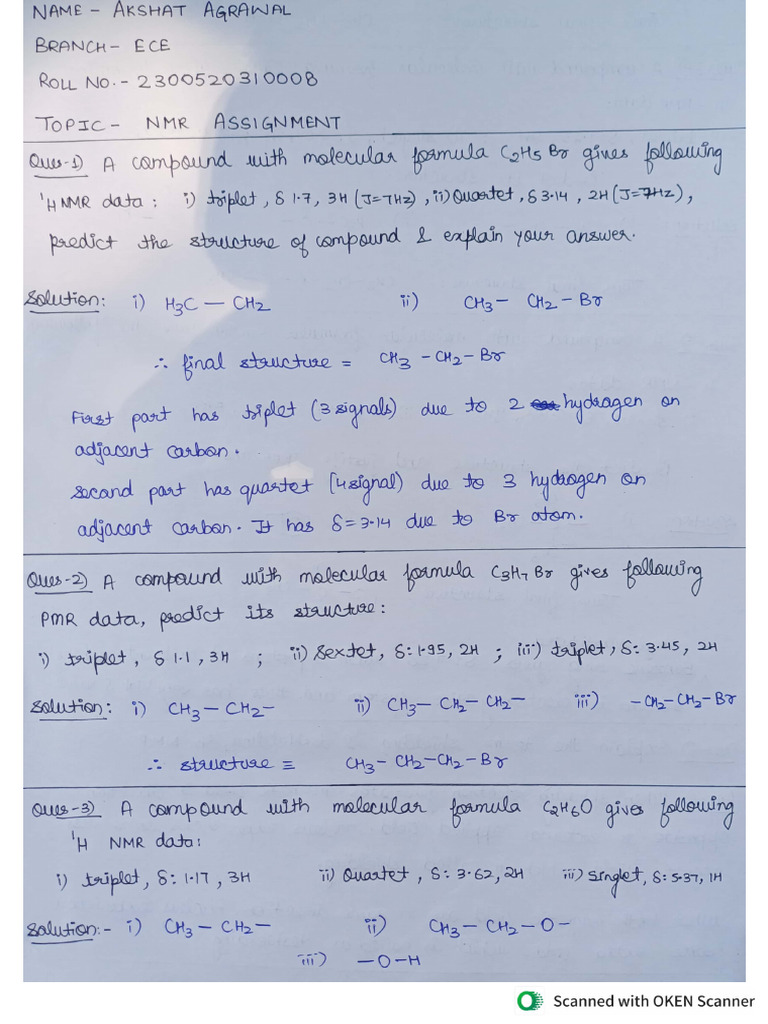 NAME - AKSHAT AGRAWAL
BRANCH - ECE
ROLL NO. - 2300520310008
TOPIC - NMR ASSIGNMENT
Ques-1) A compound with molecular formula C2H5Br gives following
¹H NMR data : i) triplet, δ 1.7, 3H (J=7Hz), ii) Quartet, δ 3.14, 2H (J=7Hz),
predict the structure of compound & explain your answer.
Solution: i) H3C — CH2 ii) CH3 — CH2 — Br
∴ final structure = CH3 - CH2 - Br
First part has triplet (3 signals) due to 2 hydrogen on
adjacent carbon.
Second part has quartet (4 signal) due to 3 hydrogen on
adjacent carbon. It has δ = 3.14 due to Br atom.
Ques-2) A compound with molecular formula C3H7Br gives following
PMR data, predict its structure :
i) triplet, δ 1.1, 3H ; ii) Sextet, δ: 1.95, 2H ; iii) triplet, δ: 3.45, 2H
Solution: i) CH3 — CH2 - ii) CH3 — CH2 — CH2 - iii) - CH2 - CH2 - Br
∴ structure = CH3 - CH2 - CH2 - Br
Ques-3) A compound with molecular formula C2H6O gives following
¹H NMR data:
i) triplet, δ: 1.17, 3H ii) Quartet, δ: 3.62, 2H iii) Singlet, δ: 5.37, 1H
Solution:- i) CH3 — CH2 — ii) CH3 — CH2 — O -
iii) — O - H
Scanned with OKEN Scanner